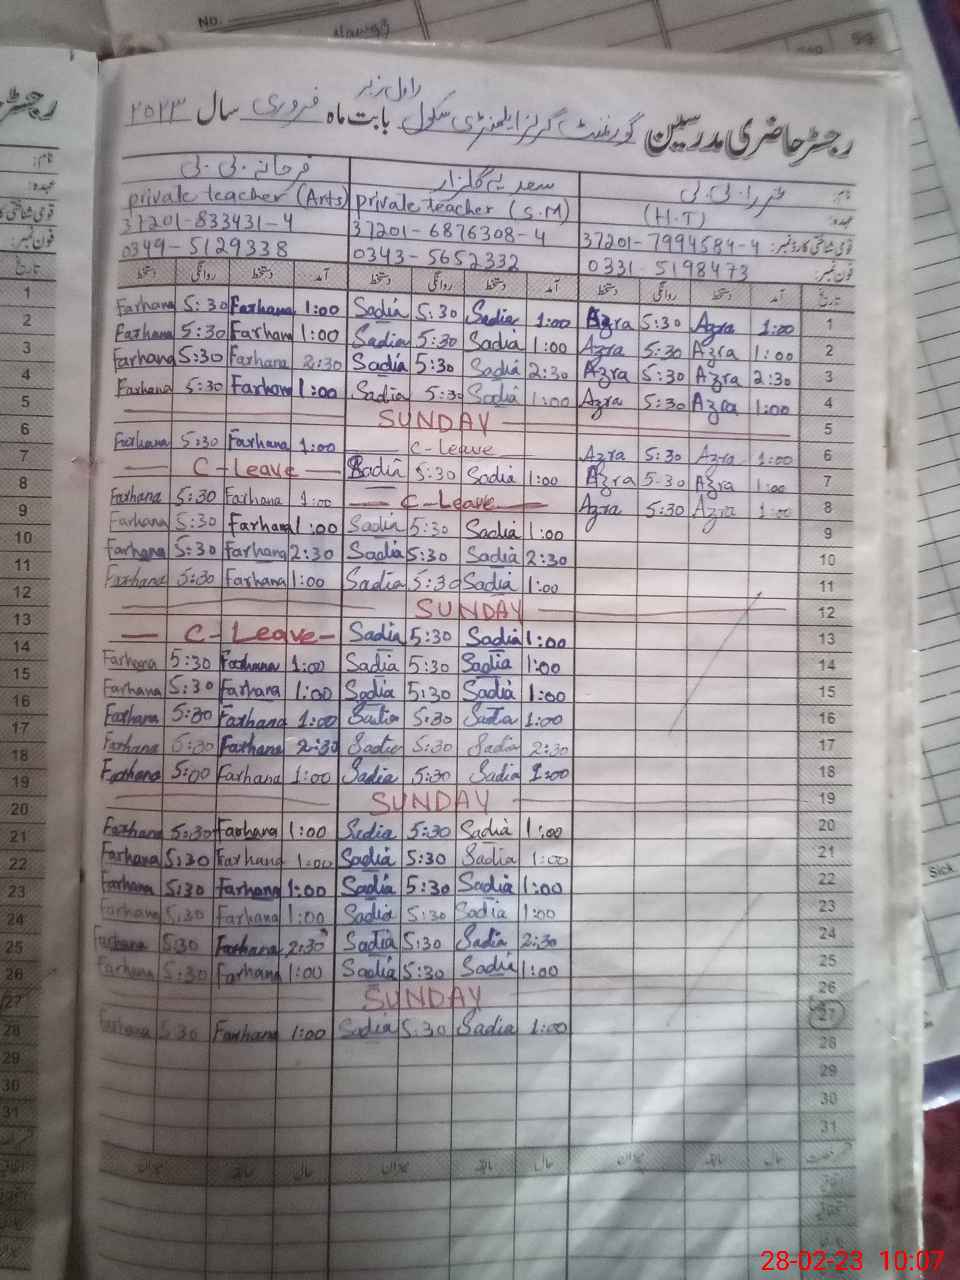 No.
راول زیر
رجسٹر حاضری مدرسین گورنمنٹ گرلز ایلیمنٹری سکول بابت ماہ فروری سال ۲۰۲۳
نام: سعدیہ گلزار فرحانہ بی بی
عہدہ: (H.T) private teacher (S.M) private teacher (Arts)
قومی شناختی کارڈ نمبر: 37201-7994584-4 37201-6876308-4 37201-833431-4
فون نمبر: 0331-5198473 0343-5652332 0349-5129338
تاریخ آمد دستخط روانگی دستخط آمد دستخط روانگی دستخط آمد دستخط روانگی دستخط
Farhana 5:30 Farhana 1:00 Sadia 5:30 Sadia 1:00 Azra 5:30 Azra 1:00 1
Farhana 5:30 Farhana 1:00 Sadia 5:30 Sadia 1:00 Azra 5:30 Azra 1:00 2
Farhana 5:30 Farhana 2:30 Sadia 5:30 Sadia 2:30 Azra 5:30 Azra 2:30 3
Farhana 5:30 Farhana 1:00 Sadia 5:30 Sadia 1:00 Azra 5:30 Azra 1:00 4
SUNDAY 5
Farhana 5:30 Farhana 1:00 C-Leave Azra 5:30 Azra 1:00 6
C-Leave Sadia 5:30 Sadia 1:00 Azra 5:30 Azra 1:00 7
Farhana 5:30 Farhana 1:00 C-Leave Azra 5:30 Azra 1:00 8
Farhana 5:30 Farhana 1:00 Sadia 5:30 Sadia 1:00 9
Farhana 5:30 Farhana 2:30 Sadia 5:30 Sadia 2:30 10
Farhana 5:30 Farhana 1:00 Sadia 5:30 Sadia 1:00 11
SUNDAY 12
C-Leave Sadia 5:30 Sadia 1:00 13
Farhana 5:30 Farhana 1:00 Sadia 5:30 Sadia 1:00 14
Farhana 5:30 Farhana 1:00 Sadia 5:30 Sadia 1:00 15
Farhana 5:30 Farhana 1:00 Sadia 5:30 Sadia 1:00 16
Farhana 5:30 Farhana 2:30 Sadia 5:30 Sadia 2:30 17
Farhana 5:00 Farhana 1:00 Sadia 5:30 Sadia 1:00 18
SUNDAY 19
Farhana 5:30 Farhana 1:00 Sadia 5:30 Sadia 1:00 20
Farhana 5:30 Farhana 1:00 Sadia 5:30 Sadia 1:00 21
Farhana 5:30 Farhana 1:00 Sadia 5:30 Sadia 1:00 22
Farhana 5:30 Farhana 1:00 Sadia 5:30 Sadia 1:00 23
Farhana 5:30 Farhana 2:30 Sadia 5:30 Sadia 2:30 24
Farhana 5:30 Farhana 1:00 Sadia 5:30 Sadia 1:00 25
SUNDAY 26
Farhana 5:30 Farhana 1:00 Sadia 5:30 Sadia 1:00 27
28
29
30
31
رجسٹر
نام:
عہدہ:
فون نمبر:
تاریخ
1
2
3
4
5
6
7
8
9
10
11
12
13
14
15
16
17
18
19
20
21
22
23
24
25
26
27
28
29
30
31
Sick
28-02-23 10:07